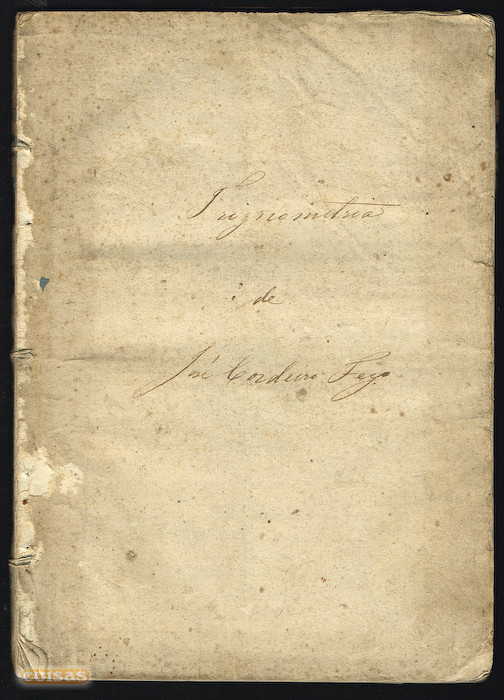 Trigniometria
de
José Cordeiro Feyo
coisas